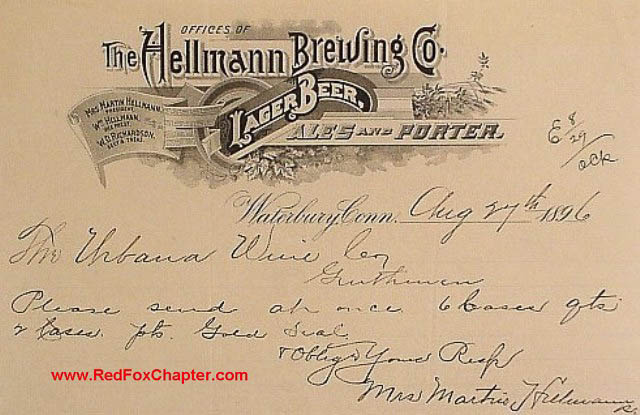 OFFICES OF
The Hellmann Brewing Co.
LAGER BEER,
ALES AND PORTER.
MRS MARTIN HELLMANN,
PRESIDENT.
WM HELLMANN,
VICE PREST.
W.D. RICHARDSON,
SECY & TREAS.
E 8/29
ack
Waterbury, Conn. Aug 27th 1896
The Urbana Wine Co
Gentlemen
Please send at once 6 Cases qts
2 Cases pts. Gold Seal
& Oblige Yours Resp
Mrs Martin Hellmann
www.RedFoxChapter.com